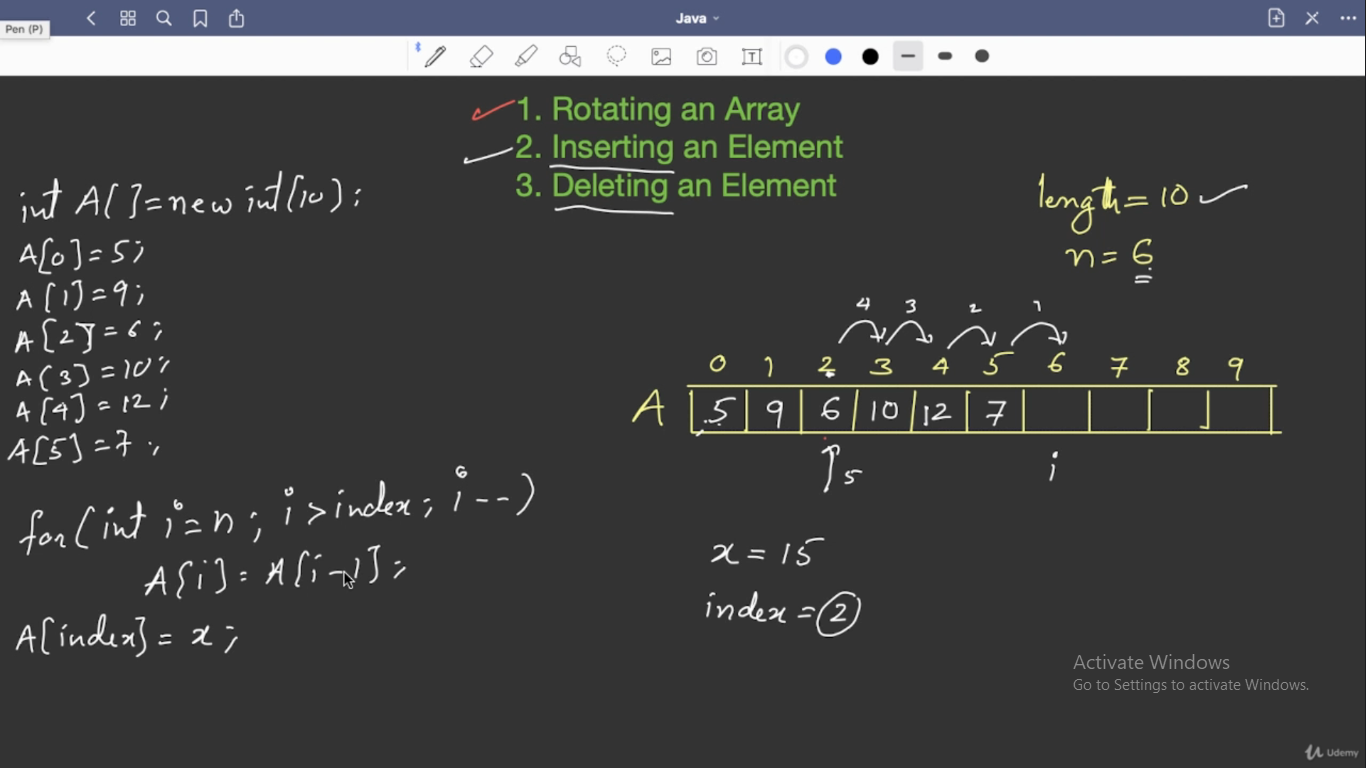 Java
Pen (P)
T
1. Rotating an Array
2. Inserting an Element
3. Deleting an Element
int A[]=new int[10];
A[0]=5;
A[1]=9;
A[2]=6;
A[3]=10;
A[4]=12;
A[5]=7;
for(int i=n; i>index; i--)
6
6
A[i]=A[i-1];
A[index]=x;
length=10
n=6
4 3 2 1
0 1 2 3 4 5 6 7 8 9
A 5 9 6 10 12 7
5 i
x=15
index=2
Activate Windows
Go to Settings to activate Windows.
Udemy